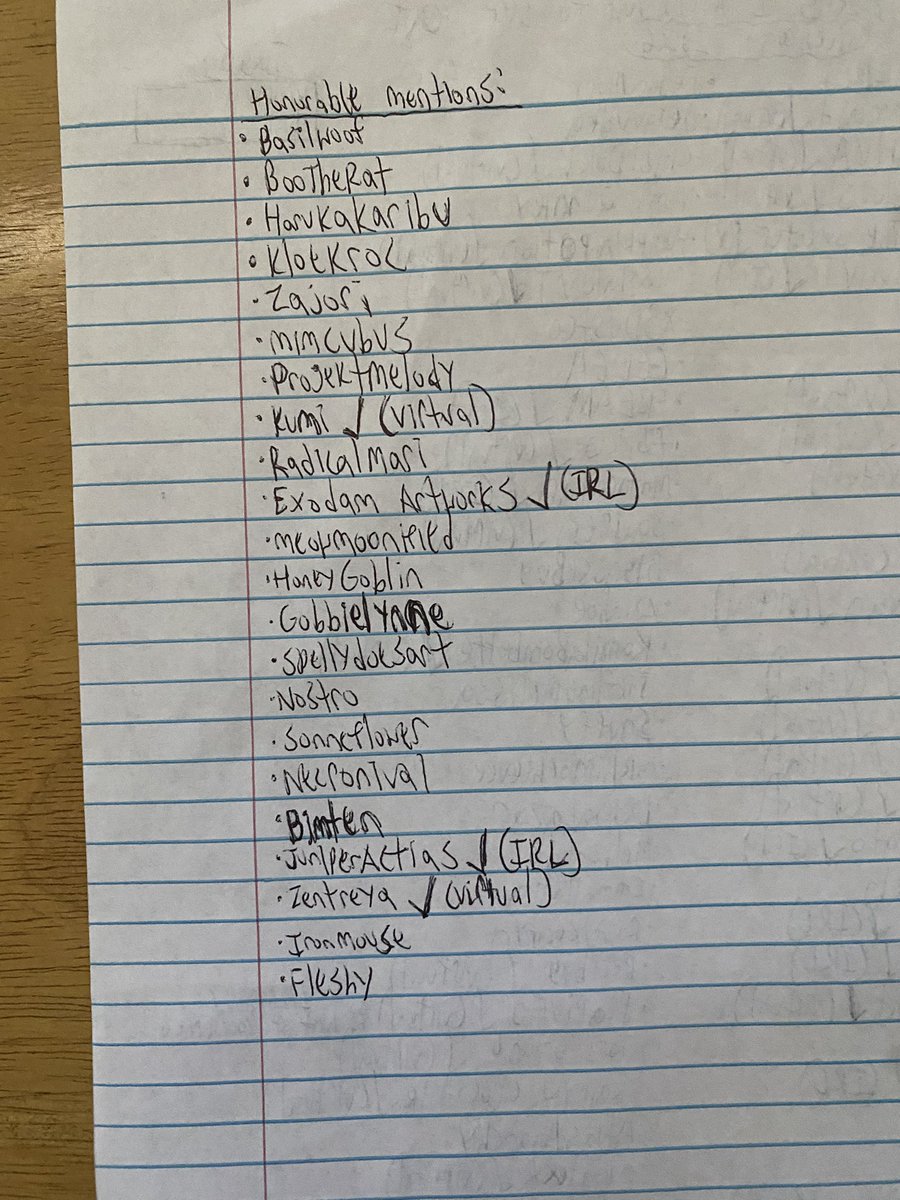 Honurable mentions:
• Basilwoof
• BooTheRat
• Harukakaribu
• KlotKrol
• Zajori
• mimcubus
• Projektmelody
• Kumi ✓ (virtual)
• RadicalMari
• Exodam Artworks ✓ (IRL)
• meowmoonified
• HoneyGoblin
• Gobbielynne
• spellydoesart
• Nostro
• Sonneflower
• Necronival
• Bimten
• JuniperActias ✓ (IRL)
• Zentreya ✓ (virtual)
• Ironmouse
• Fleshy